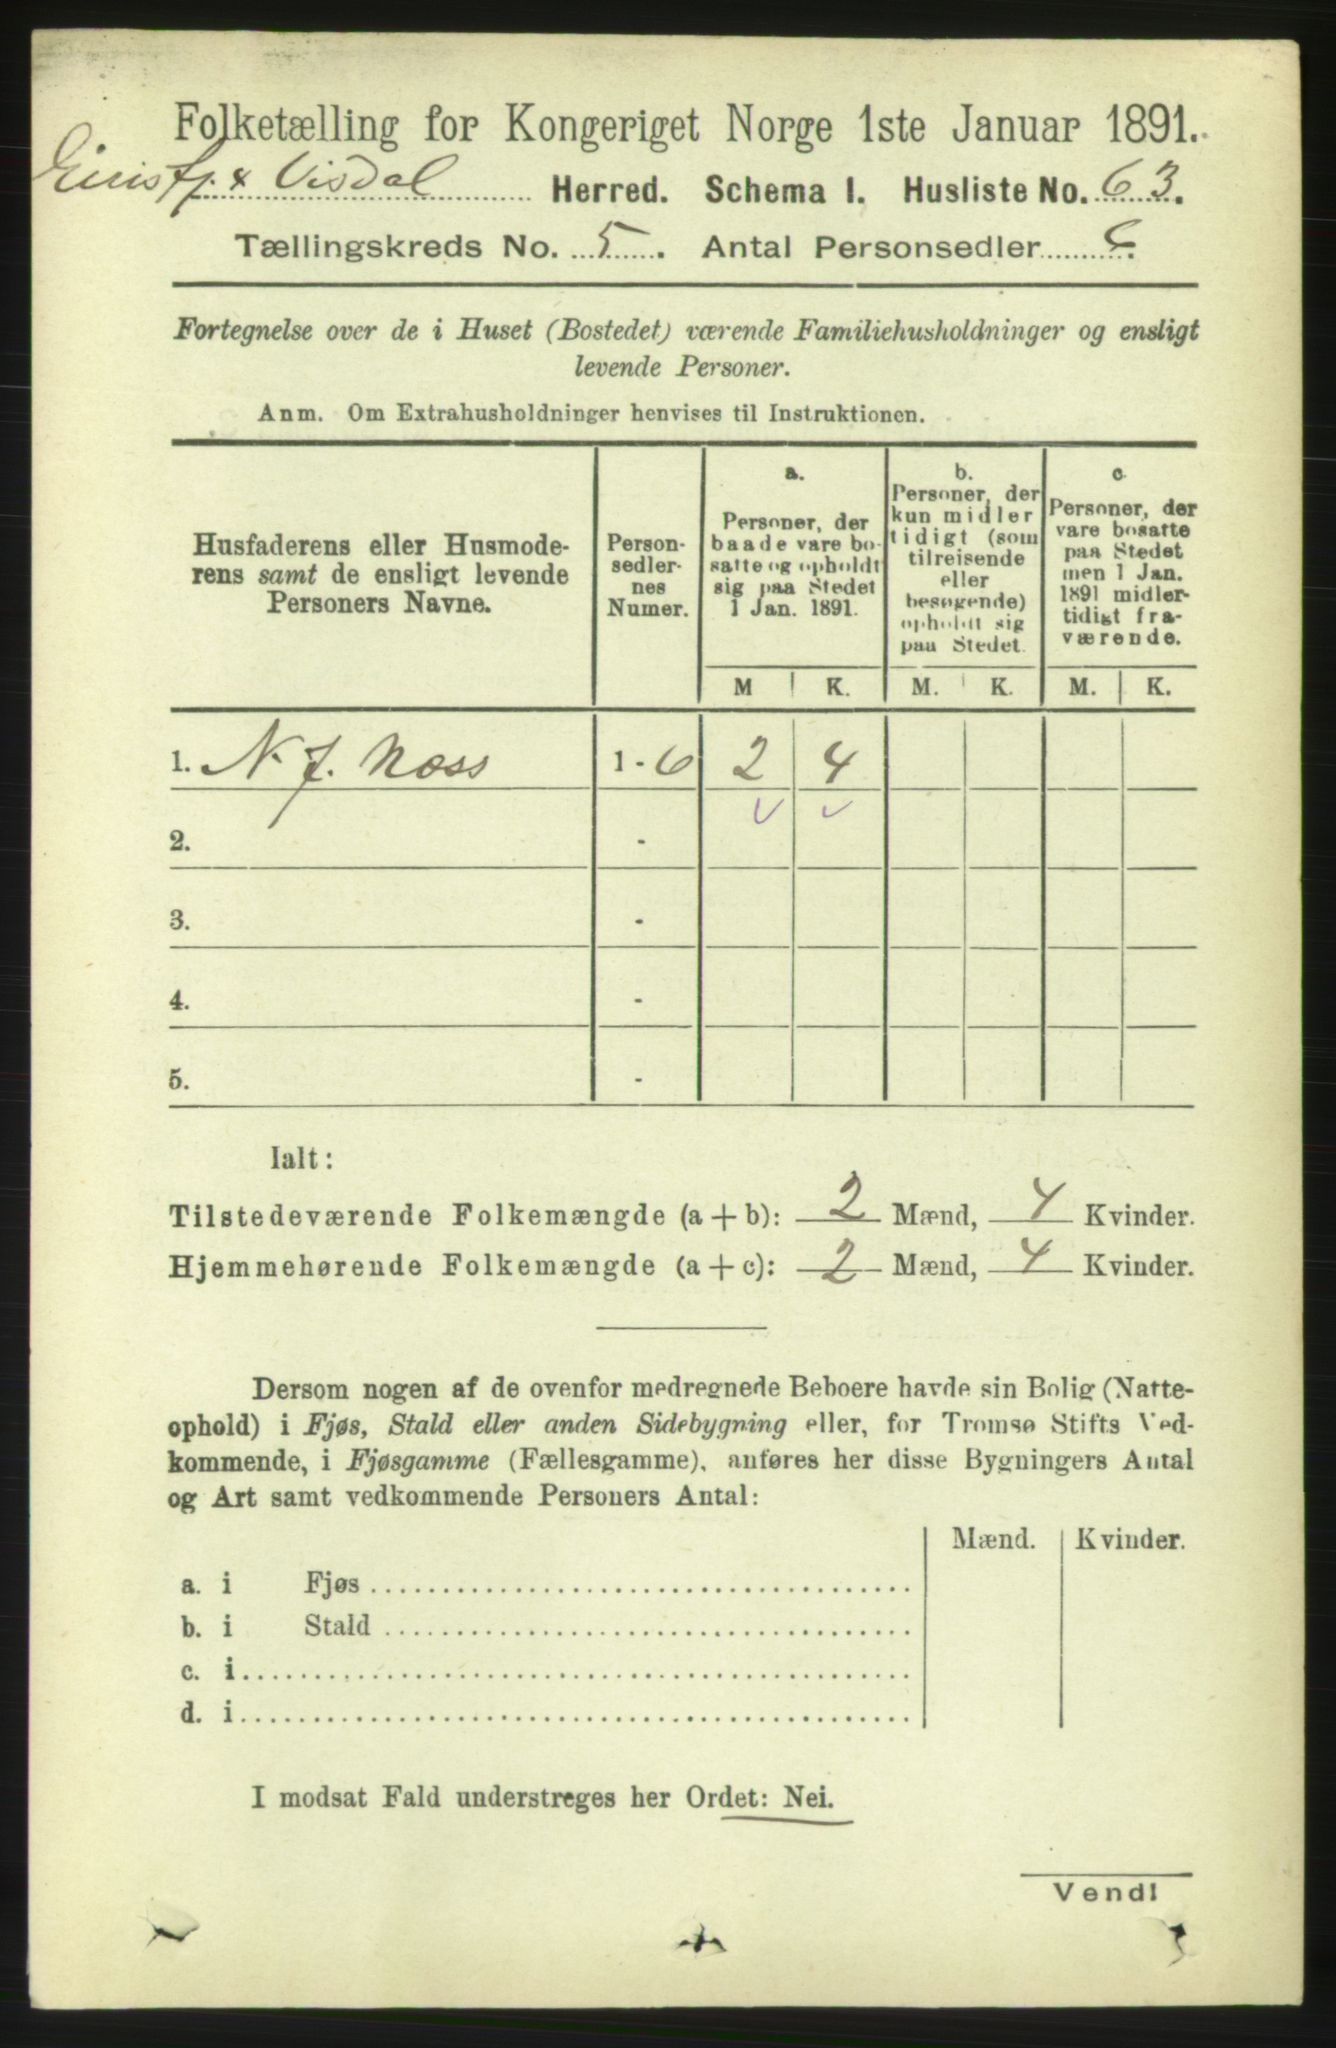 Folketælling for Kongeriget Norge 1ste Januar 1891.
Eirisfj. & Visdal Herred. Schema I. Husliste No. 63.
Tællingskreds No. 5. Antal Personsedler 6.
Fortegnelse over de i Huset (Bostedet) værende Familiehusholdninger og ensligt
levende Personer.
Anm. Om Extrahusholdninger henvises til Instruktionen.
Husfaderens eller Husmode-
rens samt de ensligt levende
Personers Navne.
Person-
sedler-
nes
Numer.
a.
Personer, der
baade vare bo-
satte og opholdt
sig paa Stedet
1 Jan. 1891.
b.
Personer, der
kun midler
tidigt (som
tilreisende
eller
besøgende)
opholdt sig
paa Stedet.
c.
Personer, der
vare bosatte
paa Stedet
men 1 Jan.
1891 midler-
tidigt fra-
værende.
M K. M. K. M. K.
1. N. J. Næss 1 - 6 2 4
2. -
3. -
4. -
5. -
Ialt:
Tilstedeværende Folkemængde (a + b): 2 Mænd, 4 Kvinder.
Hjemmehørende Folkemængde (a + c): 2 Mænd, 4 Kvinder.
Dersom nogen af de ovenfor medregnede Beboere havde sin Bolig (Natte-
ophold) i Fjøs, Stald eller anden Sidebygning eller, for Tromsø Stifts Ved-
kommende, i Fjøsgamme (Fællesgamme), anføres her disse Bygningers Antal
og Art samt vedkommende Personers Antal:
Mænd. Kvinder.
a. i Fjøs
b. i Stald
c. i
d. i
I modsat Fald understreges her Ordet: Nei.
Vend!